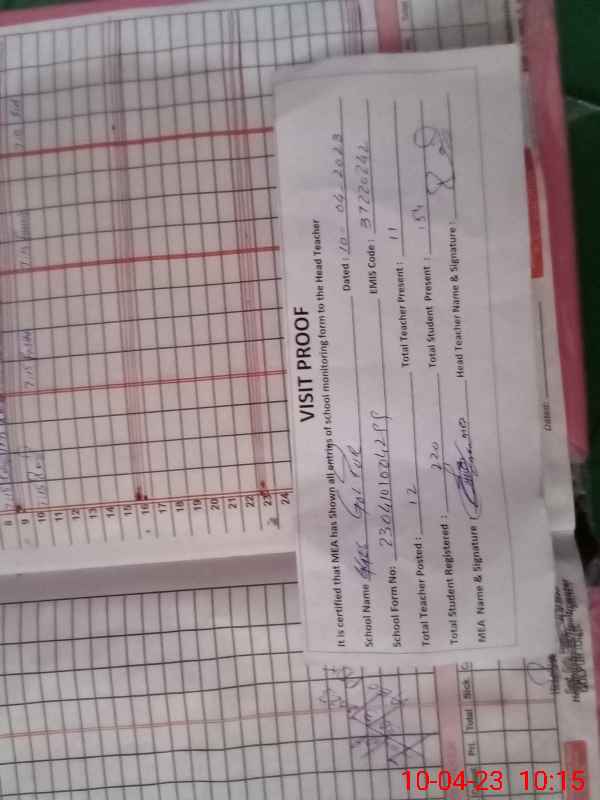 VISIT PROOF
It is certified that MEA has Shown all entries of school monitoring form to the Head Teacher
School Name Gul Pur Dated : 10-04-2023
School Form No: 2304101004299 EMIS Code : 37220242
Total Teacher Posted : 12 Total Teacher Present : 11
Total Student Registered : 220 Total Student Present : 154
MEA Name & Signature : Head Teacher Name & Signature :
8
9
10
11
12
13
14
15
16
17
18
19
20
21
22
23
24
Dated:
Total
10-04-23 10:15